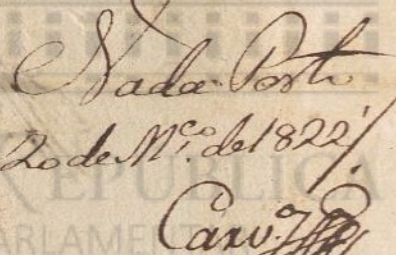 Nada. Porto
20 de M.ço de 1822/
Carv.º
REPÚBLICA
PARLAMENT